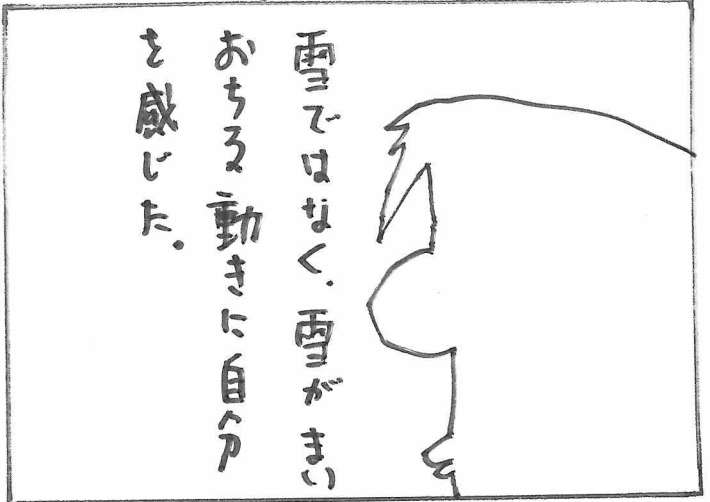 雪ではなく、雪がまい
おちる動きに自分
を感じた。